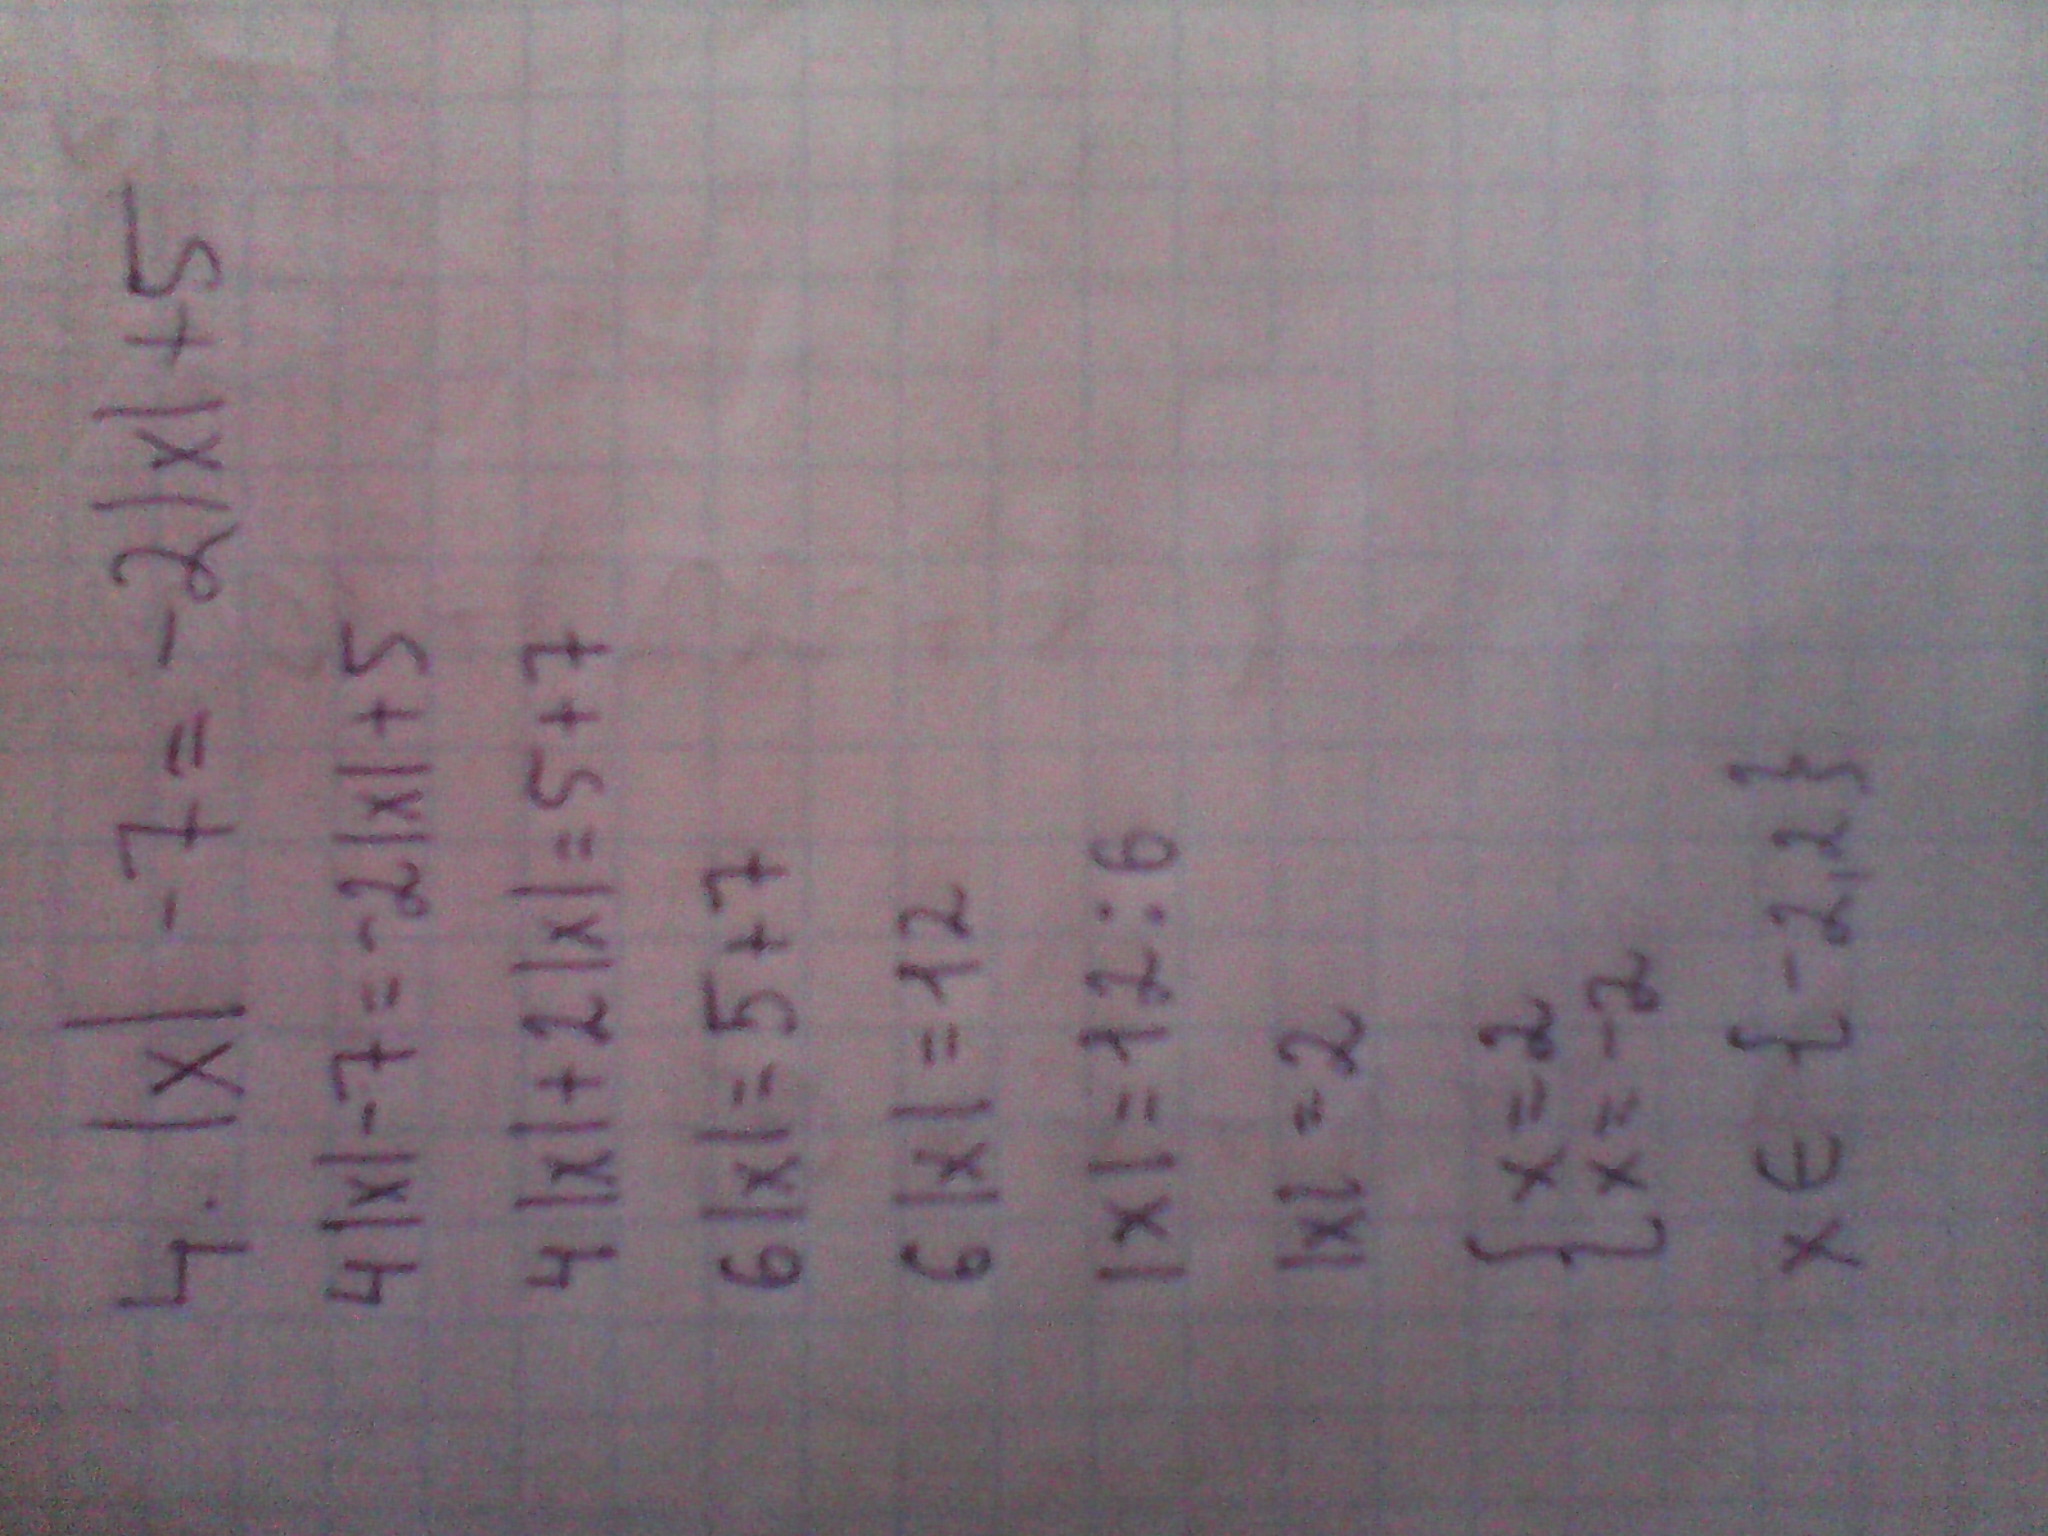 4. |x| -7 = -2|x|+5
4|x|-7=-2|x|+5
4|x|+2|x|=5+7
6|x|=5+7
6|x|=12
|x|=12:6
|x|=2
{ x=2
x=-2
x ∈ {-2,2}